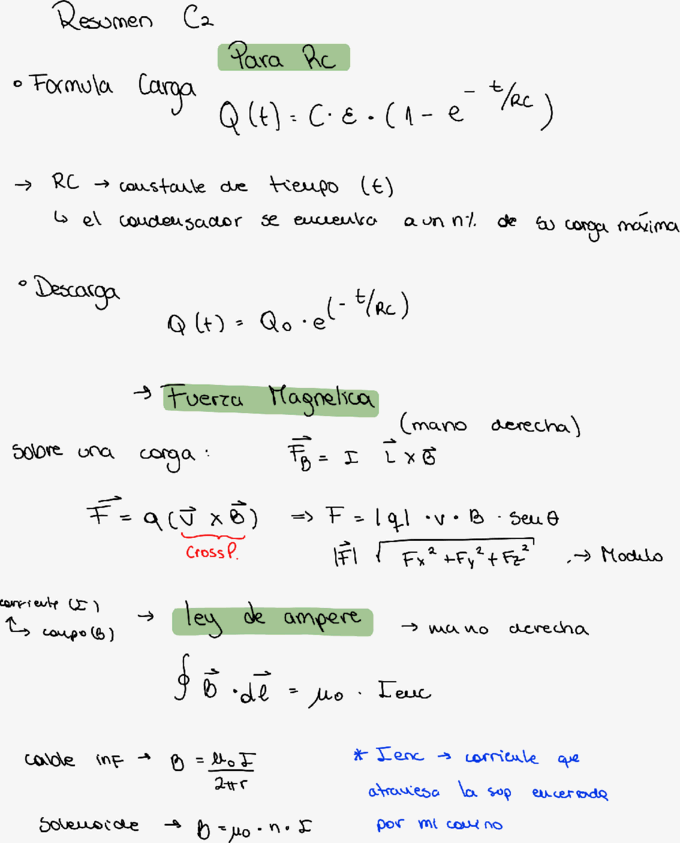 Resumen C2
Para Rc
• Formula Carga
Q(t) = C · ε · (1 - e^{-t/RC})
→ RC → constante de tiempo (t)
↳ el condensador se encuentra a un n% de su carga máxima
• Descarga
Q(t) = Q₀ · e^{(-t/RC)}
→ Fuerza Magnetica
(mano derecha)
sobre una carga: F⃗_B = I L⃗ × B⃗
F⃗ = q(v⃗ × B⃗) ⇒ F = |q| · v · B · senθ
Cross P. |F⃗| √(Fx² + Fy² + Fz²) → Modulo
corriente (I)
↳ campo (B)
→ ley de ampere → mano derecha
∮ B⃗ · dℓ⃗ = μ₀ · Ienc
cable inf → B = μ₀I / 2πr
solenoide → B = μ₀ · n · I
* Ienc → corriente que
atraviesa la sup encerrada
por mi camino